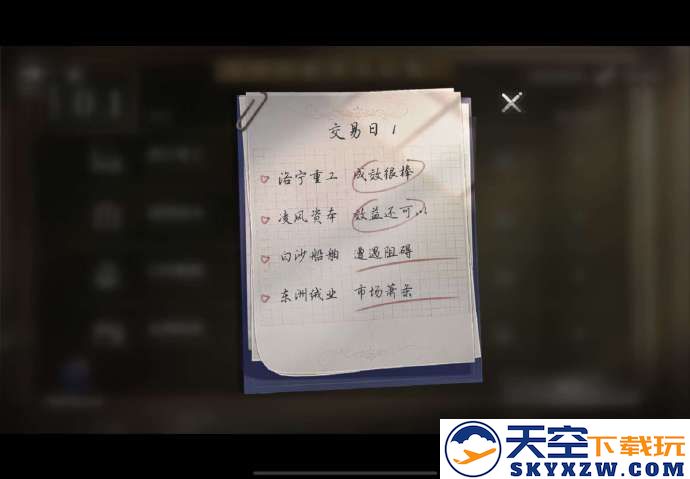 交易日 1
洛宁重工 成效很棒
凌风资本 效益还可...
白沙船舶 遭遇阻碍
东洲绒业 市场萧条
天空下载玩
SKYXZW.COM